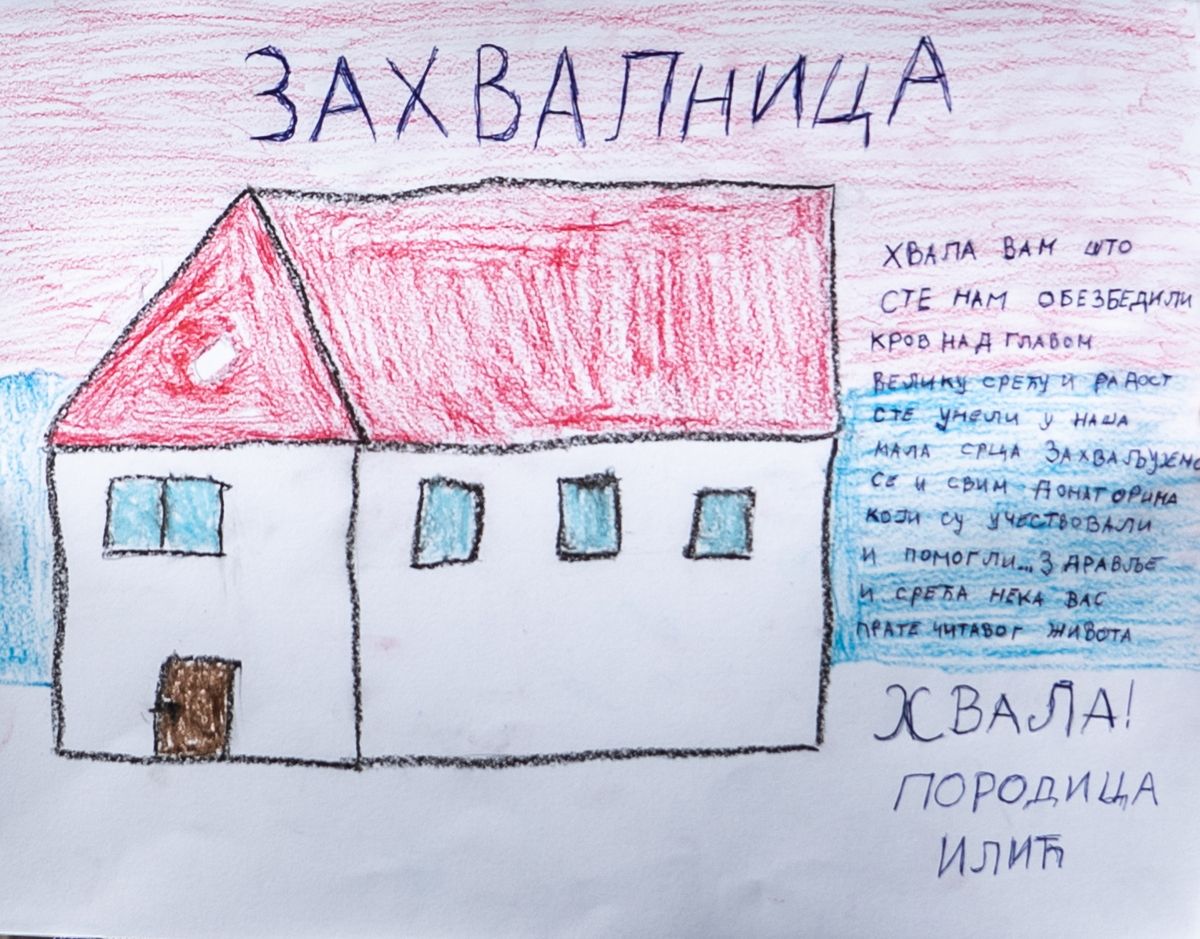 ЗАХВАЛНИЦА
ХВАЛА ВАМ ШТО
СТЕ НАМ ОБЕЗБЕДИЛИ
КРОВ НАД ГЛАВОМ
ВЕЛИКУ СРЕЋУ И РАДОСТ
СТЕ УНЕЛИ У НАША
МАЛА СРЦА ЗАХВАЉУЈЕМО
СЕ И СВИМ ДОНАТОРИМА
КОЈИ СУ УЧЕСТВОВАЛИ
И ПОМОГЛИ... ЗДРАВЉЕ
И СРЕЋА НЕКА ВАС
ПРАТЕ ЧИТАВОГ ЖИВОТА
ХВАЛА!
ПОРОДИЦА
ИЛИЋ